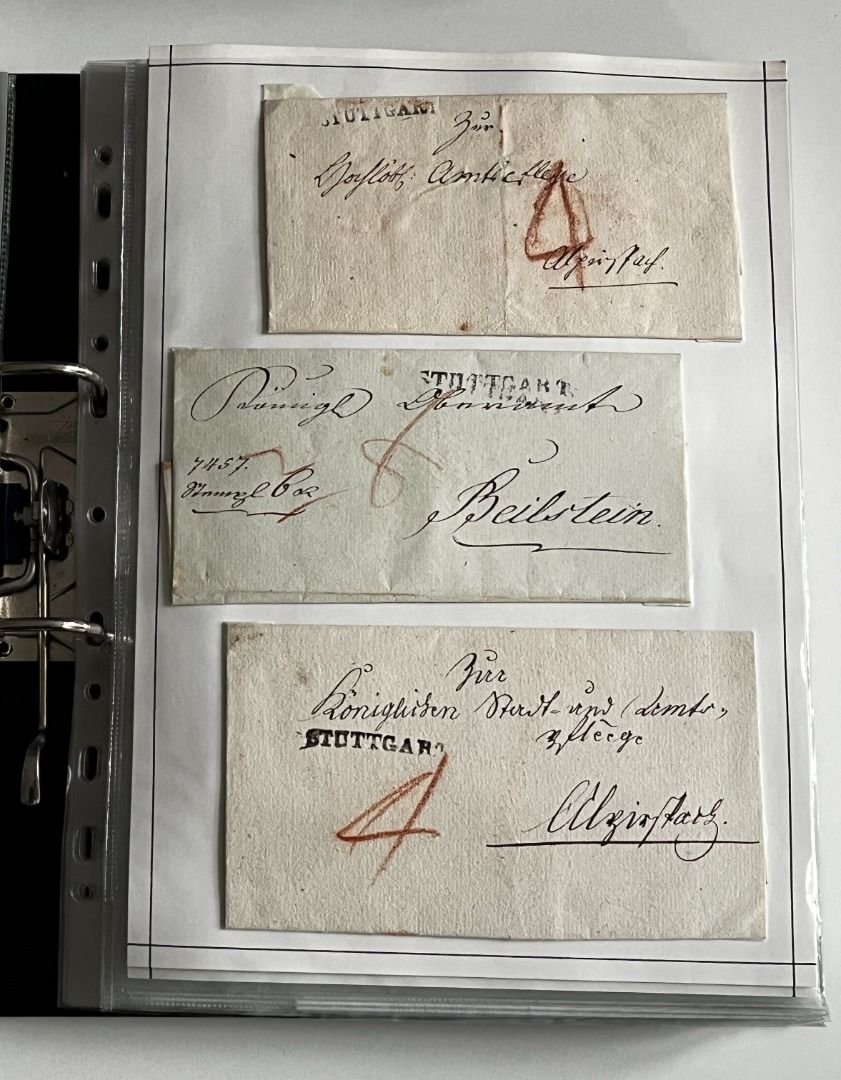 STUTTGART
Zur
Hochlöbl: Amtspflege
4
Alpirspach.
STUTTGART
Königl Oberamt
8
7457.
Stempl 6 x
Beilstein.
Zur
Königlichen Stadt- und Amts-
pfleege
STUTTGART
4
Alpirspach.